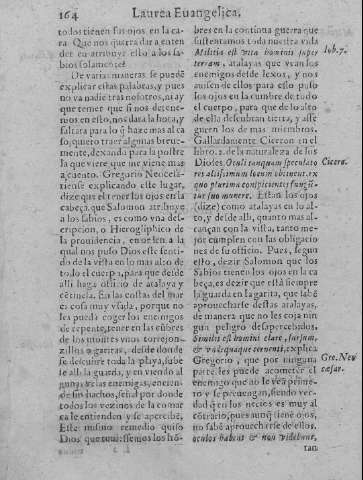 164 Laurea Euangelica,
todos tienen sus ojos en la ca-
ra. Que nos querra dar a enten
der en atribuyr esto a los sa-
bios solamente?
De varias maneras se puedē
explicar estas palabras, y pues
no va nadie tras nosotros, ni ay
que temer que si nos detene-
mos en esto, nos dara la hora, y
faltara para lo q̃ haze mas al ca
so, quiero traer algunas breue-
mente, dexando para la postre
la que viere que me viene mas
a cuento. Gregorio Neocesa-
riense explicando este lugar,
dize que el tener los ojos en la
cabeça, que Salomon atribuye
a los sabios, es como vna des-
cripcion, o Hieroglisphico de
la prouidencia, en orden a la
qual nos puso Dios este senti-
do de la vista en lo mas alto de
todo el cuerpo, para que desde
alli haga oficio de atalaya y
cētinela. En las costas del mar
es cosa muy vsada, porque no
les pueda coger los enemigos
de repente, tener en las cūbres
de los montes vnos torrejon-
zillos o garitas, desde donde
se descubre toda la playa, sube
se alli la guarda, y en viendo al
gunas velas enemigas, encien-
de sus hachos, señal por donde
todos los vezinos de la comar
ca le entienden y se aperciben.
Este mismo remedio quiso
Dios que tuuiessemos los hō-
bres en la continua guerra que
sustentamos toda nuestra vida
Militia est vita hominis super
terram, atalayas que vean los
enemigos desde lexos, y nos
auisen dellos para esto puso
los ojos en la cumbre de todo
el cuerpo, para que de lo alto
de ella descubran tierra, y asse
guren los de mas miembros.
Gallardamente Ciceron en el
libro. 2. de la naturaleza de los
Dioses. Oculi tanquam speculato
res altissimum locum obtinent, ex
quo plurima conspicientes fungū
tur suo munere. Estan los ojos
(dize) como atalayas en lo al-
to, y desde alli, quanto mas al-
cançan con la vista, tanto me-
jor cumplen con las obligacio
nes de su officio. Pues, segun
esto, dezir Salomon que los
Sabios tienen los ojos en la ca
beça, es dezir que està siempre
la guarda en la garita, que sabē
aprouecharse destas atalayas,
de manera que no les coja nin
gun peligro desapercebidos.
Similis est homini clare, sursum,
& vndequaque cernenti, explica
Gregorio, que por ninguna
parte les puede acometer el
enemigo que no le vea prime-
ro y se preuengan, siendo ver-
dad q̃ en los necios es muy al
cōtrario, pues aunq̃ tienē ojos,
no sabē aprouecharse de ellos,
oculos habent & non videbunt,
tan
Iob. 7.
Cicero.
Gre. Neo
cesar.